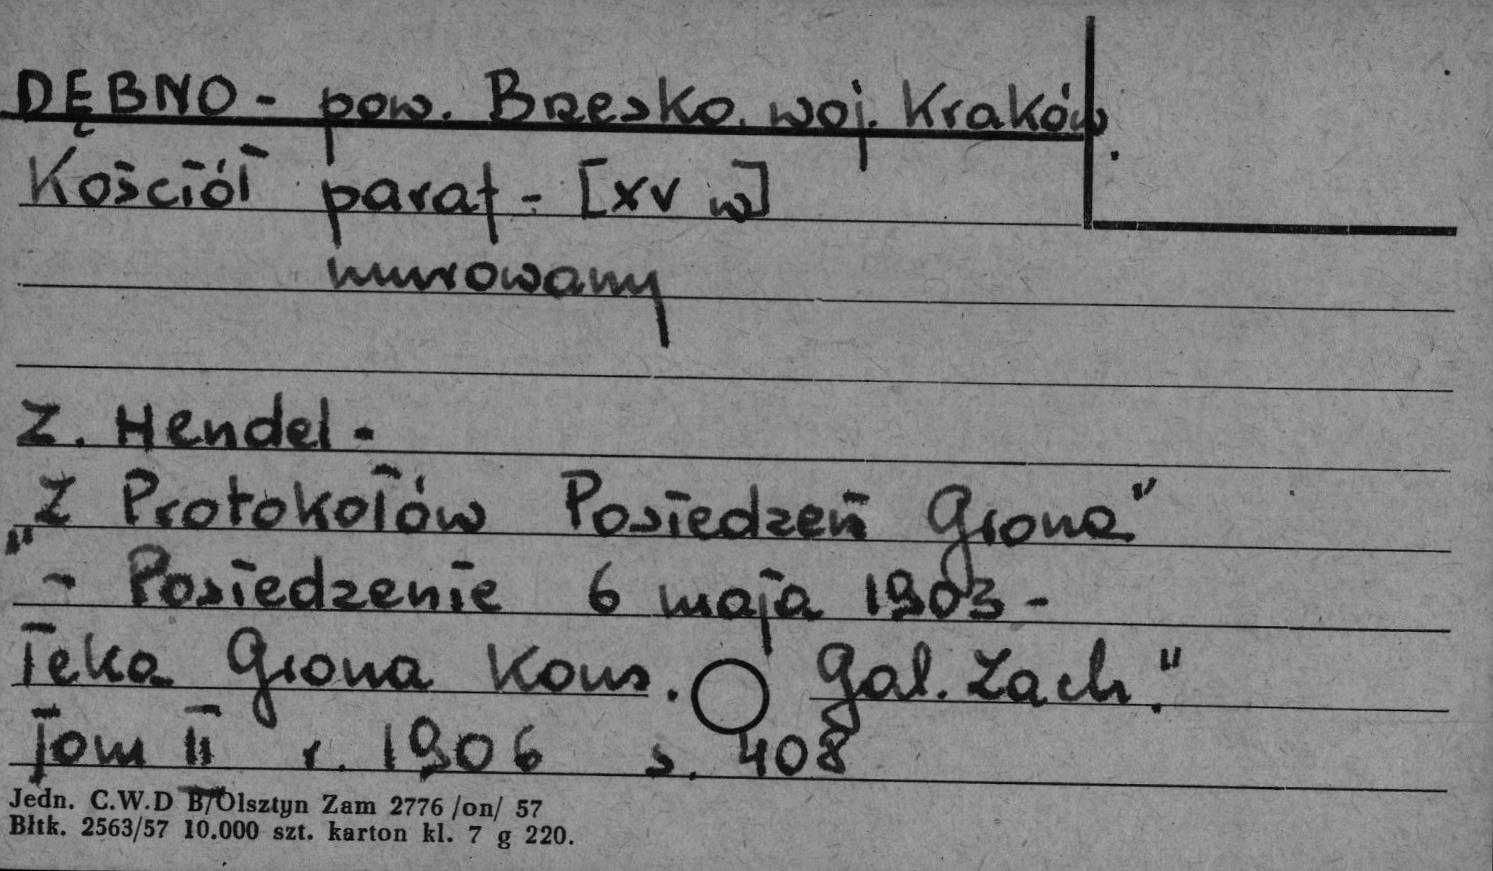 DĘBNO - pow. Brzesko. woj. Kraków.
Kościół paraf - [XV w]
murowany
Z. Hendel -
„Z Protokołów Posiedzeń Grona"
- Posiedzenie 6 maja 1903 -
Teka Grona Kons. Gal. Zach."
Tom II r. 1906 s. 408
Jedn. C.W.D B/Olsztyn Zam 2776 /on/ 57
Błtk. 2563/57 10.000 szt. karton kl. 7 g 220.